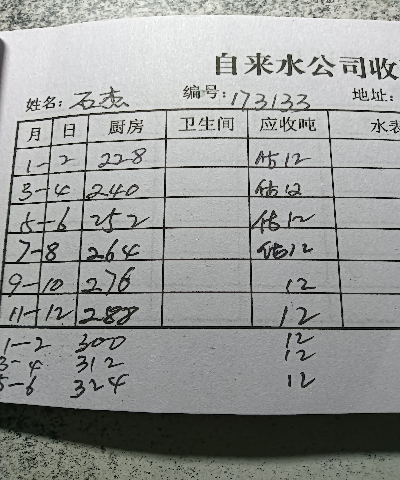 自来水公司收
姓名：石杰 编号：173133 地址：
月 日 厨房 卫生间 应收吨 水表
1-2 228 估12
3-4 240 估12
5-6 252 估12
7-8 264 估12
9-10 276 12
11-12 288 12
1-2 300 12
3-4 312 12
5-6 324 12